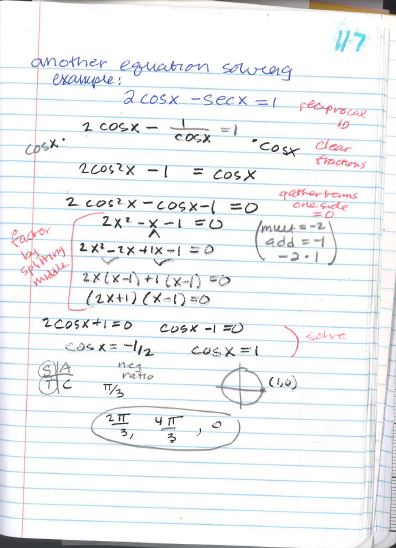 117
another equation solving
example:
2cosx - secx = 1
reciprocal
ID
2 cosx - 1/cosx = 1
cosx· ·cosx
clear
fractions
2cos²x - 1 = cosx
2 cos²x - cosx - 1 = 0
gather terms
one side
= 0
factor
by
splitting
middle
2x² - x - 1 = 0
(mult = -2
add = -1
-2·1)
2x² - 2x + 1x - 1 = 0
2x(x-1) + 1(x-1) = 0
(2x+1)(x-1) = 0
2cosx+1=0 cosx-1=0
solve
cosx = -1/2 cosx = 1
S A
T C
neg
ratio
π/3
(1,0)
2π/3, 4π/3, 0